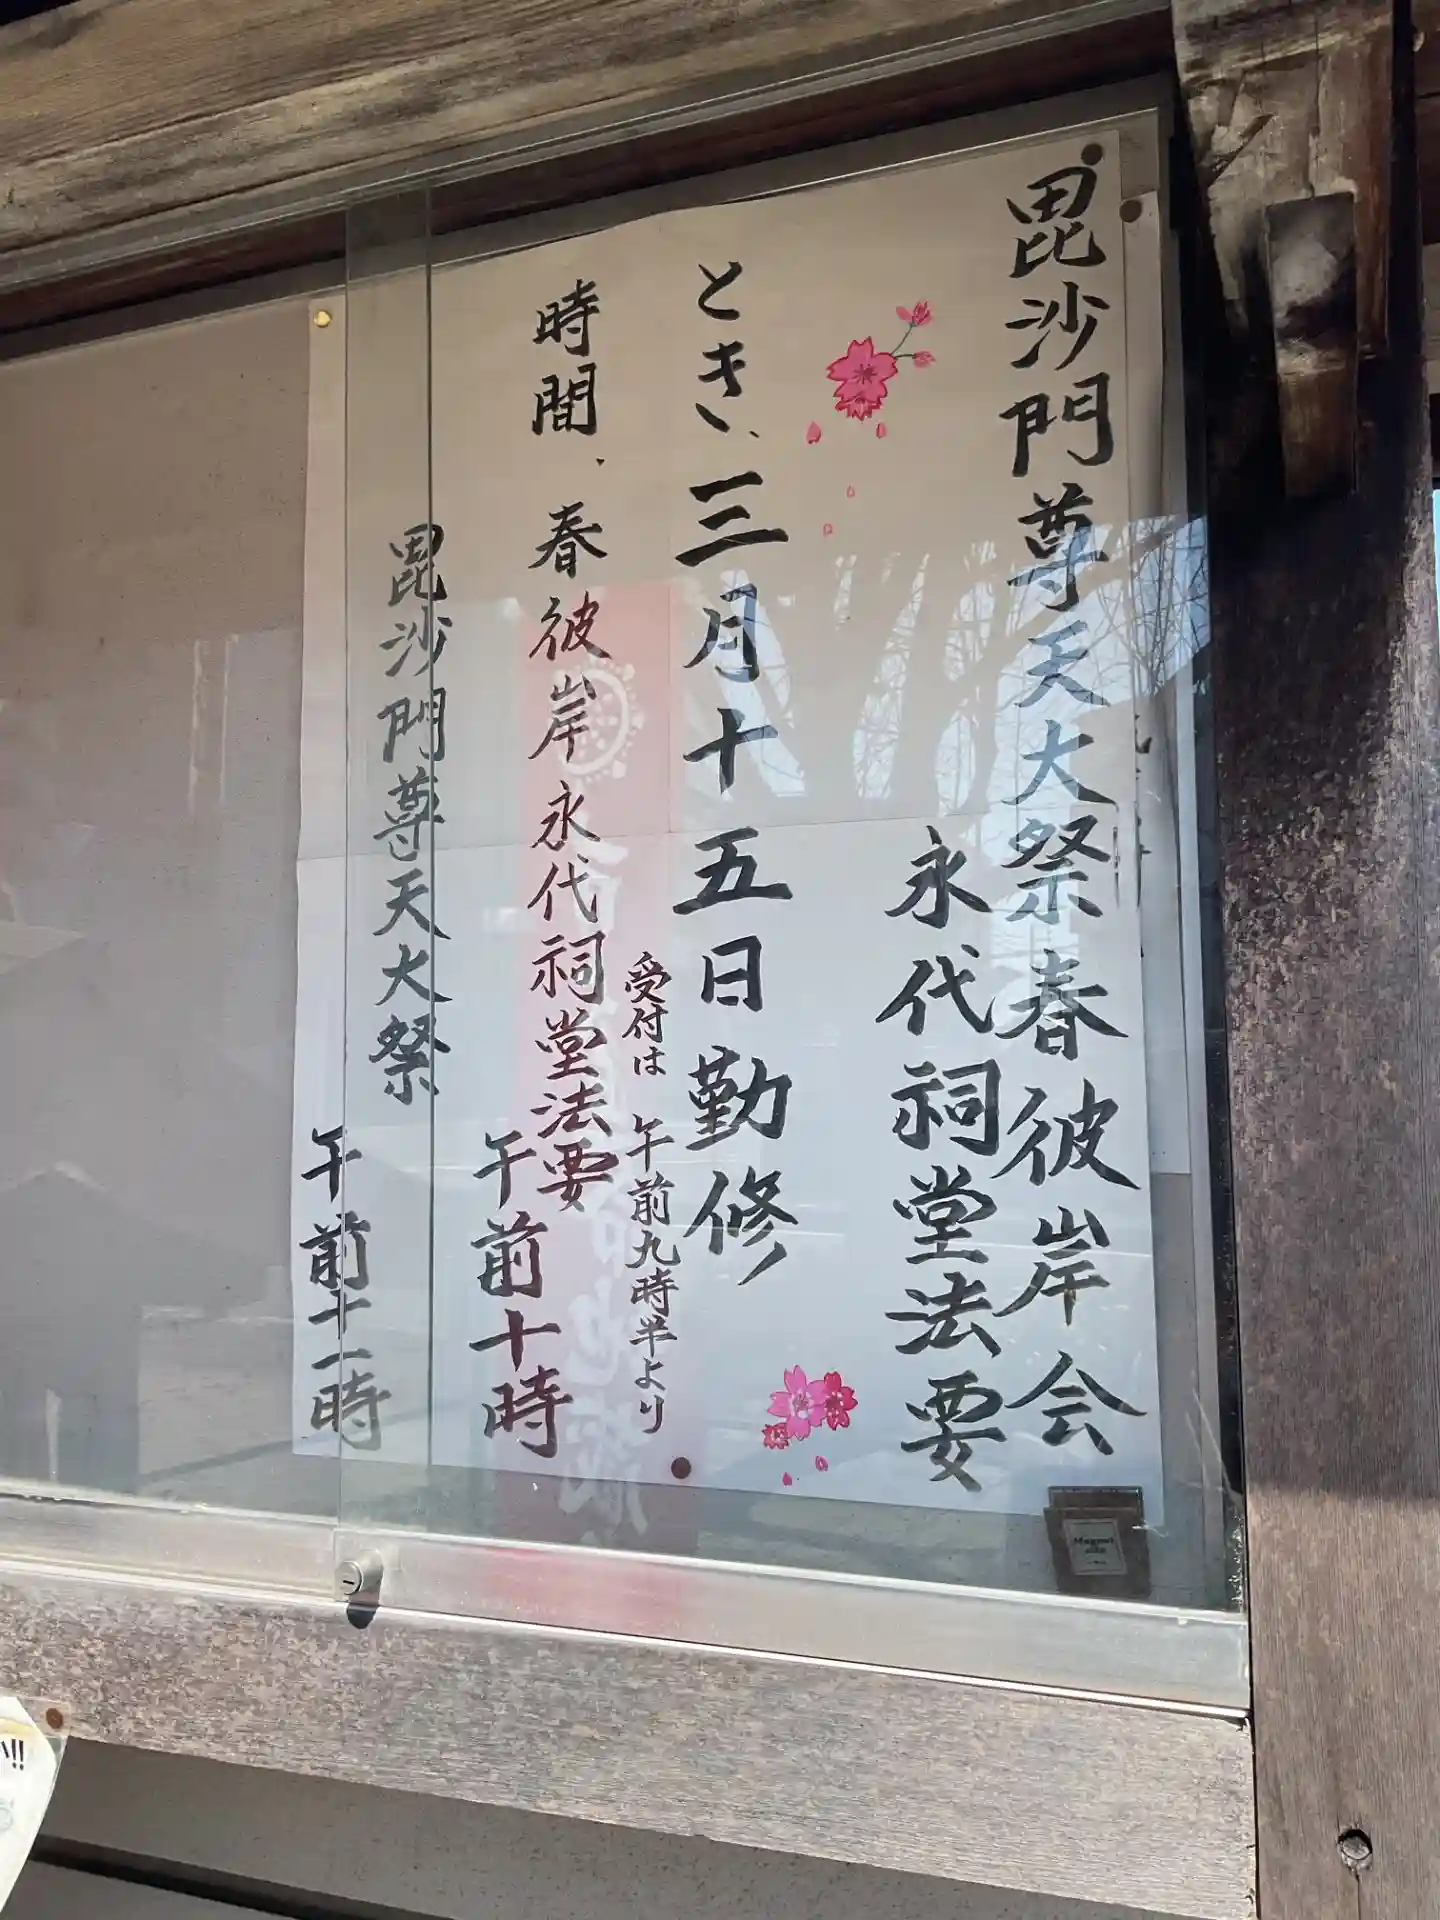 毘沙門尊天大祭春彼岸会
永代祠堂法要
とき、三月十五日勤修
受付は 午前九時半より
時間、春彼岸永代祠堂法要
午前十時
毘沙門尊天大祭
午前十一時